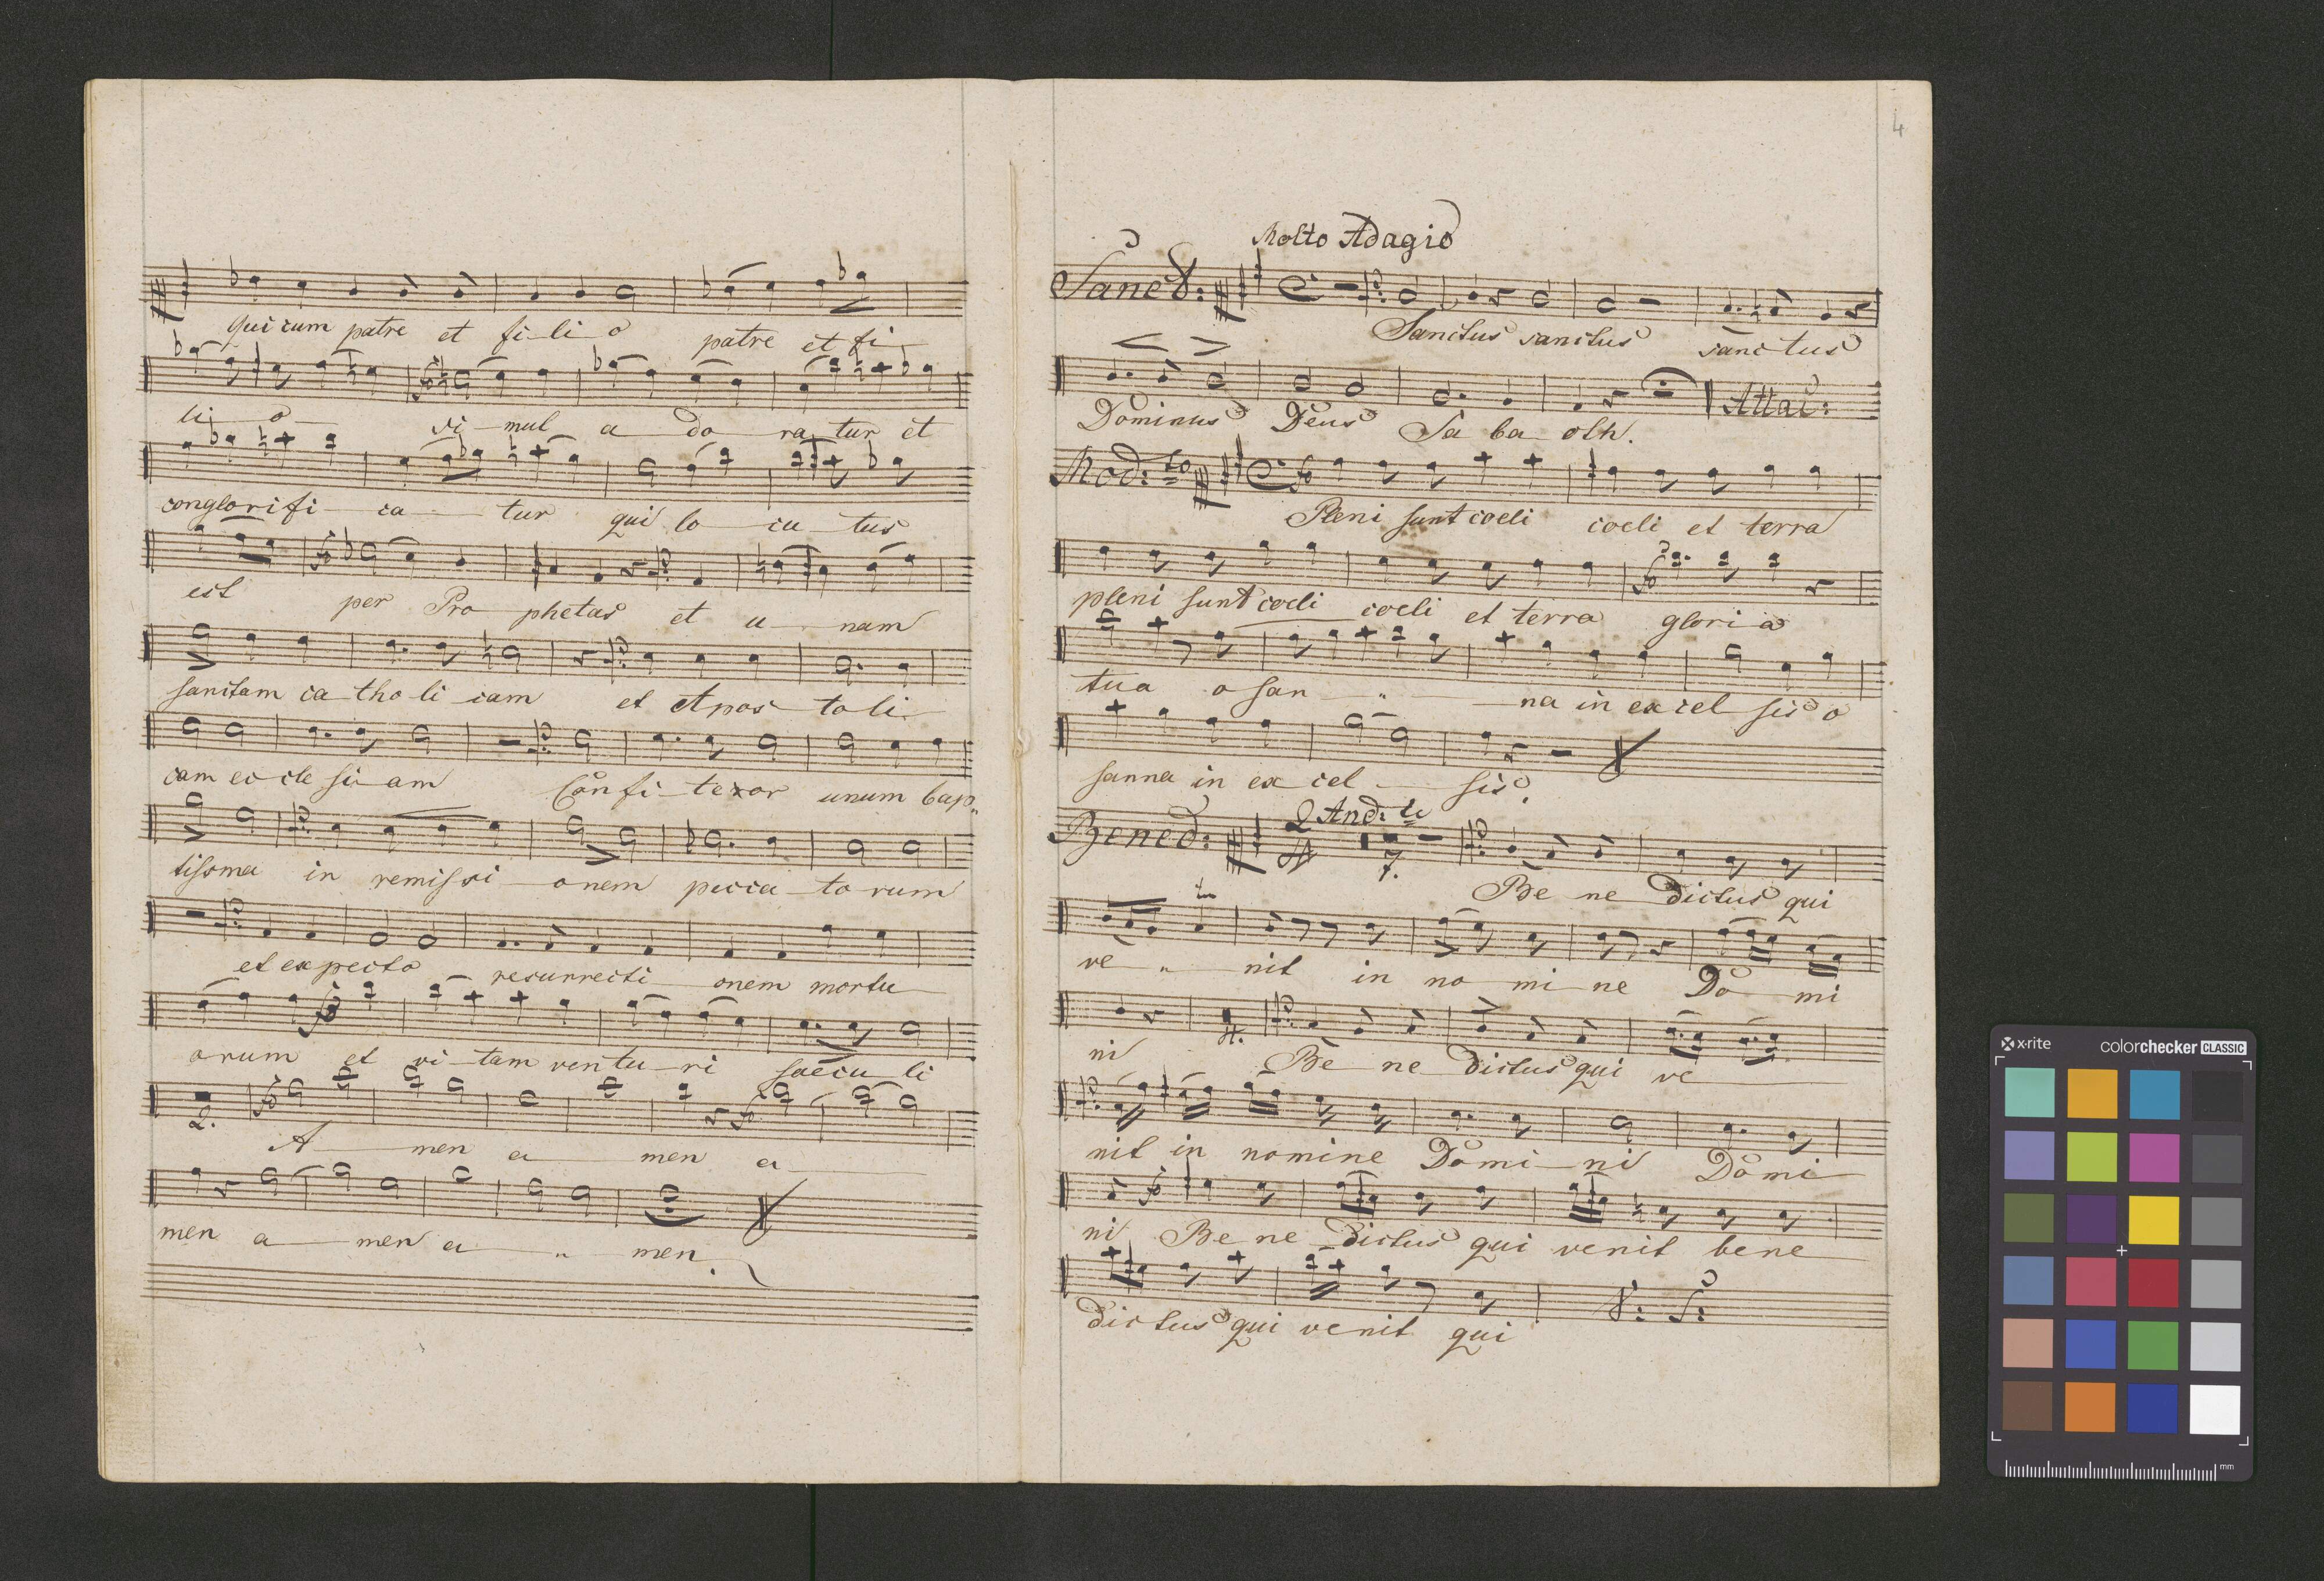 qui cum patre et fi-li-o patre et fi
li o si-mul a do ra tur et
conglorifi-ca-tur qui lo-cu-tus
est per Pro-phetas et u-nam
sanctam ca-tho-li-cam et Apos-to-li-
cam ec-cle si-am Confi-teror unum bap„
tissma in remissi-onem pecca-to-rum
et expecto resurrecti-onem mortu
orum et vi-tam ventu-ri saecu-li
2.
A-men a men a
men a men a „ men.
4
Molto Adagio
Sanct: Sanctus sanctus sanctus
Dominus Deus Sa ba oth. Attac:
Mod:to fo
Pleni sunt coeli coeli et terra
pleni sunt coeli coeli et terra gloria
tua o san „ na in excel sis o
sanna in excel sis.
Bened: 2/4 And:te 7.
Be ne dictus qui
ve „ nit in no mi ne Do mi
ni 4. Be ne dictus qui ve
nit in nomine Domi-ni Domi
ni Be ne dictus qui venit bene
dictus qui venit qui V: S:
x·rite colorchecker CLASSIC
mm